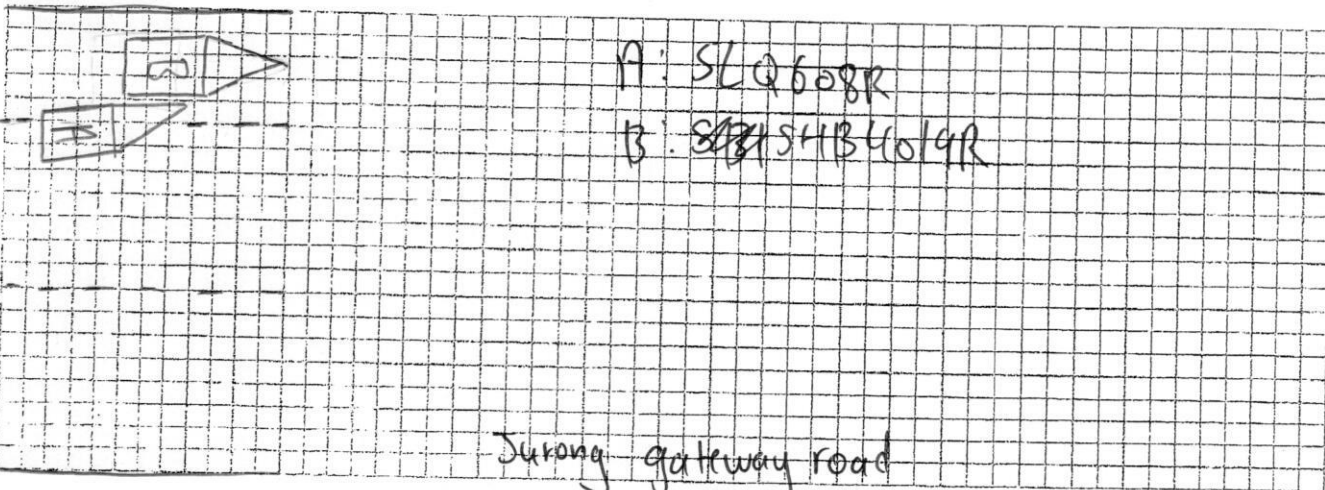 B
A
A: SLQ608R
B: SHB4019R
Jurong gateway road